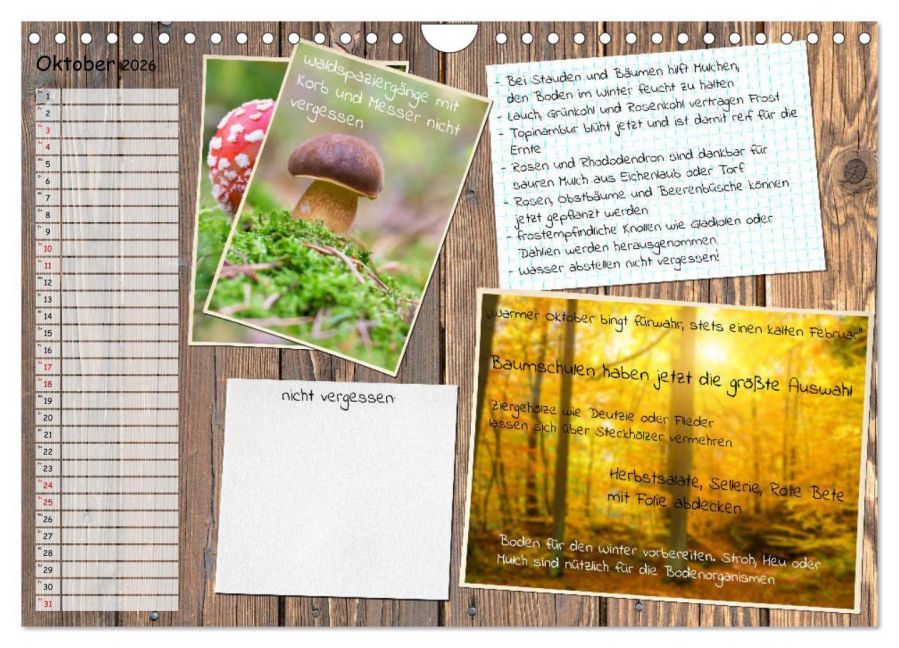 Oktober 2026
1
2
3
4
5
6
7
8
9
10
11
12
13
14
15
16
17
18
19
20
21
22
23
24
25
26
27
28
29
30
31
Waldspaziergänge mit
Korb und Messer nicht
vergessen
- Bei Stauden und Bäumen hilft Mulchen,
den Boden im Winter feucht zu halten
- Lauch, Grünkohl und Rosenkohl vertragen Frost
- Topinambur blüht jetzt und ist damit reif für die
Ernte
- Rosen und Rhododendron sind dankbar für
sauren Mulch aus Eichenlaub oder Torf
- Rosen, Obstbäume und Beerenbüsche können
jetzt gepflanzt werden
- frostempfindliche Knollen wie Gladiolen oder
Dahlien werden herausgenommen
- Wasser abstellen nicht vergessen!
nicht vergessen:
„Warmer Oktober bingt fürwahr, stets einen kalten Februar"
Baumschulen haben jetzt die größte Auswahl
Ziergehölze wie Deutzie oder Flieder
lassen sich über Steckhölzer vermehren
Herbstsalate, Sellerie, Rote Bete
mit Folie abdecken
Boden für den Winter vorbereiten. Stroh, Heu oder
Mulch sind nützlich für die Bodenorganismen